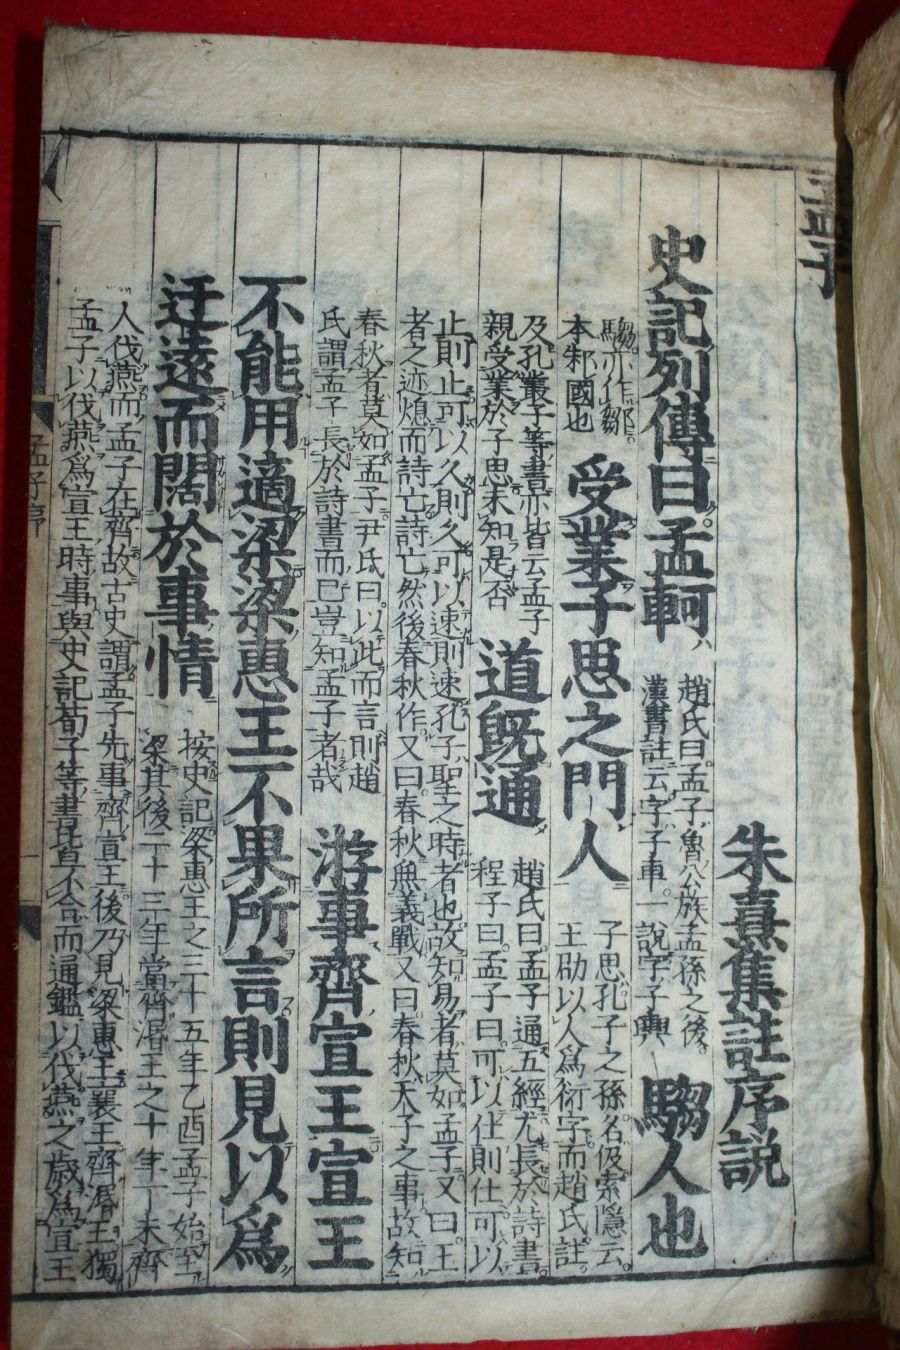 孟子
朱熹集註序説
史記列傳曰孟軻
趙氏曰孟子魯公族孟孫之後
漢書註云字子車一說字子輿
騶人也
騶亦作鄒
本邾國也
受業子思之門人
子思孔子之孫名伋索隱云
王劭以人爲衍字而趙氏註
及孔叢子等書亦皆云孟子
親受業於子思未知是否
道既通
趙氏曰孟子通五經尤長於詩書
程子曰孟子曰可以仕則仕可以
止則止可以久則久可以速則速孔子聖之時者也故知易者莫如孟子又曰王
者之迹熄而詩亡詩亡然後春秋作又曰春秋無義戰又曰春秋天子之事故知
春秋者莫如孟子尹氏曰以此而言則趙
氏謂孟子長於詩書而已豈知孟子者哉
游事齊宣王宣王
不能用適梁梁惠王不果所言則見以爲
迂遠而闊於事情
按史記梁惠王之三十五年乙酉孟子始至
梁其後二十三年當齊湣王之十年丁未齊
人伐燕而孟子在齊故古史謂孟子先事齊宣王後乃見梁惠王襄王齊湣王獨
孟子以伐燕爲宣王時事與史記荀子等書皆不合而通鑑以伐燕之歲爲宣王
孟子序
一